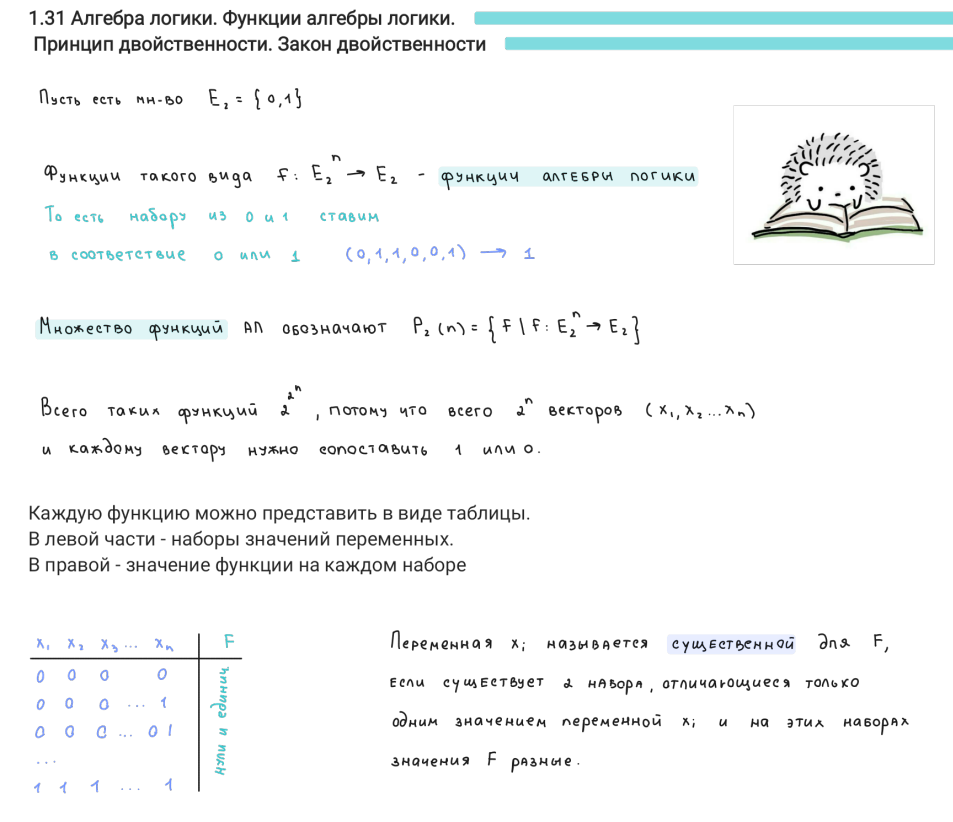 1.31 Алгебра логики. Функции алгебры логики.
Принцип двойственности. Закон двойственности
Пусть есть мн-во E₂ = {0,1}
Функции такого вида F: E₂ⁿ → E₂ - функции алгебры логики
То есть набору из 0 и 1 ставим
в соответствие 0 или 1 (0,1,1,0,0,1) → 1
Множество функций АЛ обозначают P₂(n) = {F | F: E₂ⁿ → E₂}
Всего таких функций 2^2^n, потому что всего 2ⁿ векторов (x₁, x₂ ... xₙ)
и каждому вектору нужно сопоставить 1 или 0.
Каждую функцию можно представить в виде таблицы.
В левой части - наборы значений переменных.
В правой - значение функции на каждом наборе
x₁ x₂ x₃ ... xₙ F
0 0 0 0
0 0 0 ... 1
0 0 0 ... 0 1
...
1 1 1 ... 1
нули и единич
Переменная xᵢ называется существенной для F,
если существует 2 набора, отличающиеся только
одним значением переменной xᵢ и на этих наборах
значения F разные.